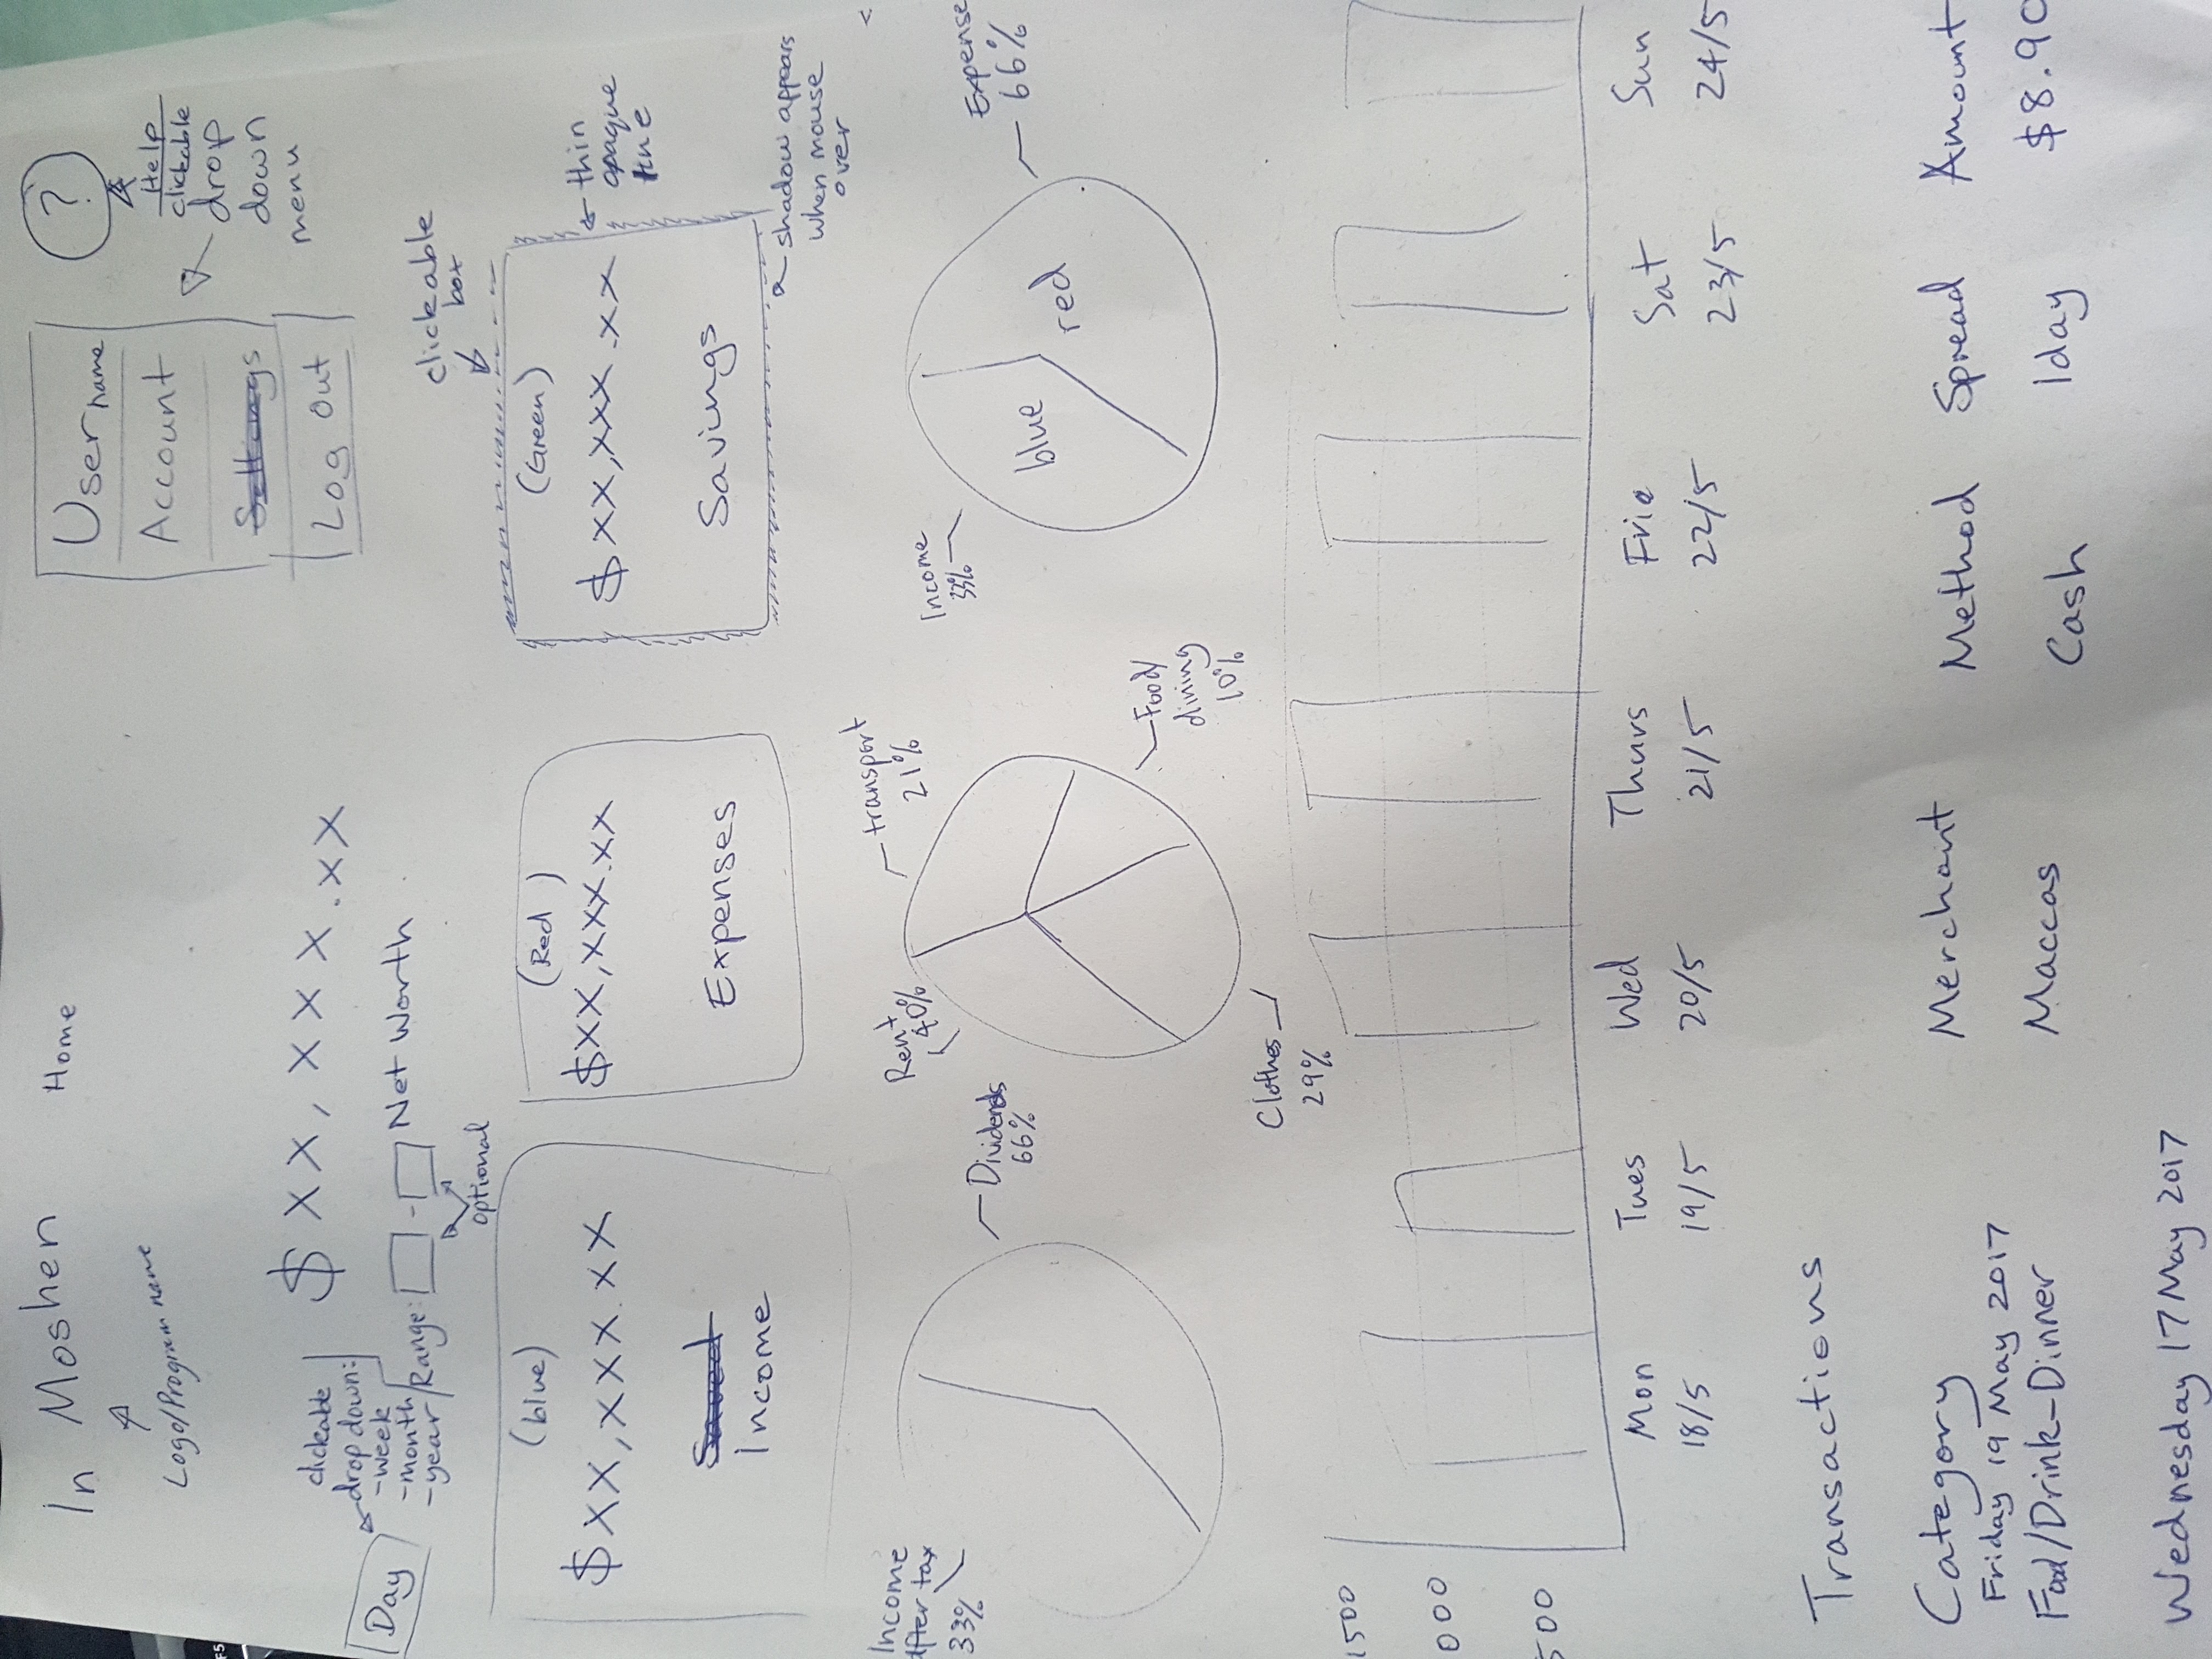 In Moshen
Home
Logo/Program name
Username
Account
Settings
Log Out
?
Help
clickable
drop
down
menu
$xx,xxx.xx
Net Worth
Day
clickable
drop down:
-week
-month
-year
Range: -
optional
clickable
box
(blue)
$xx,xxx.xx
Saved
Income
(Red)
$xx,xxx.xx
Expenses
(Green)
$xx,xxx.xx
Savings
thin
opaque
line
shadow appears
when mouse
over
Income
After tax
33%
Dividends
66%
Rent
40%
transport
21%
Food/
dining
10%
Clothes
29%
Income
33%
blue
red
Expense
66%
1500
000
500
Mon
18/5
Tues
19/5
Wed
20/5
Thurs
21/5
Frie
22/5
Sat
23/5
Sun
24/5
Transactions
Category Merchant Method Spread Amount
Friday 19 May 2017
Food/Drink-Dinner Maccas Cash 1day $8.90
Wednesday 17 May 2017
F5